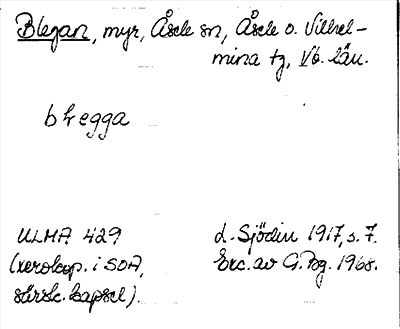 Blegan, myr, Åsele sn, Åsele o. Vilhel-
mina tg, Vb. län.
blegga
ULMA 429
(xerokop. i SOA,
särsk. kapsel).
L. Sjödin 1917, s. 7.
Exc. av G. Pog. 1968.